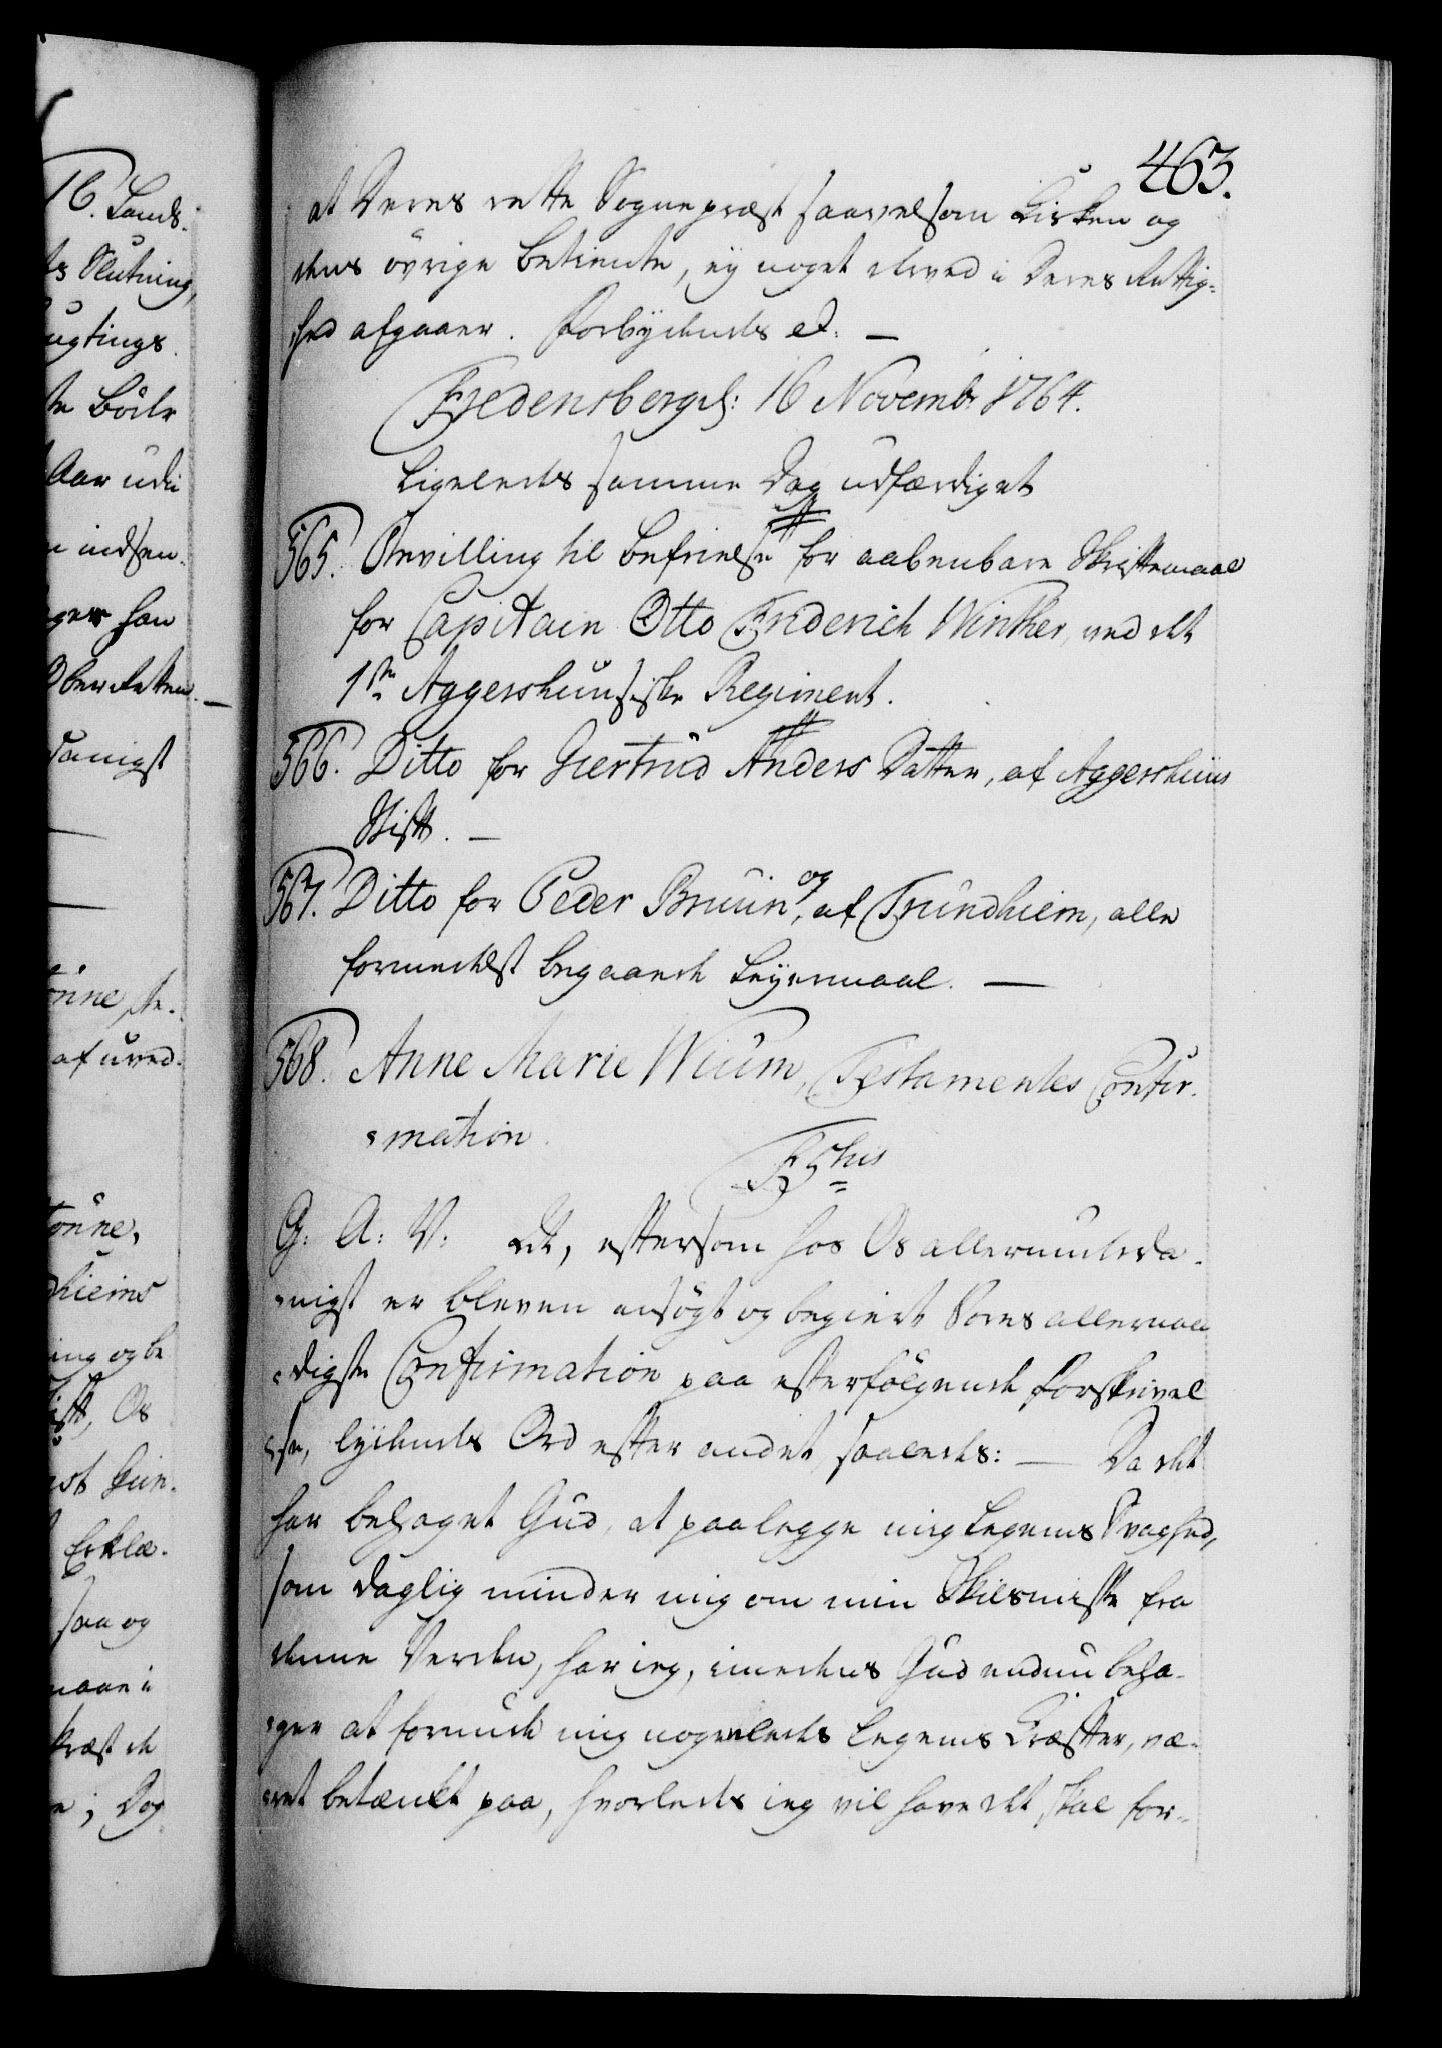 463.
at Deres rette Sognepræst saavelsom Kirken og
dens övrige Betiente, ej noget derved i Deres Rettig-
hed afgaaer. Forbydendes etc. —
Fredensberg Sl: 16 Novembr 1764.
Ligeledes samme Dag udfærdiget
565. Bevilling til Befrielse for aabenbare Skriftemaal
for Capitain Otto Friderich Winther, ved det
1ste Aggershuusiske Regiment.
566. Ditto for Giertrud Anders Datter, af Aggershuus
Stift. —
567. Ditto for Peder Bruun, og af Trundhiem, alle
formedelst begaaede Leyermaal. —
568. Anne Marie Wium, Testamentes Confir-
mation.
F 5thus
G: A: V: At, eftersom hos Os allerunderda-
nigst er bleven ansögt og begiert Vores allernaa-
digste Confirmation paa efterfölgende Forskrivel
se, lydendes Ord efter andet saaledes: — Da det
har behaget Gud, at paalegge mig Legems Svaghed,
som daglig minder mig om min Skilsmisse fra
denne Verden, har ieg, imedens Gud endnu beha-
ger at forunde mig nogenledes Legems Kræfter, væ-
ret betænkt paa, hvorledes ieg vil have det skal for-
16. Lands-
Slutning,
ugtings
te Bøde
Aar udi
indsen-
ger han
Ober Retten. —
danigst
önne, de-
af uved-
tönne,
dhiems
ing og be
ift, Os
Erklæ-
saa og
maae i
kræft de
; Dog